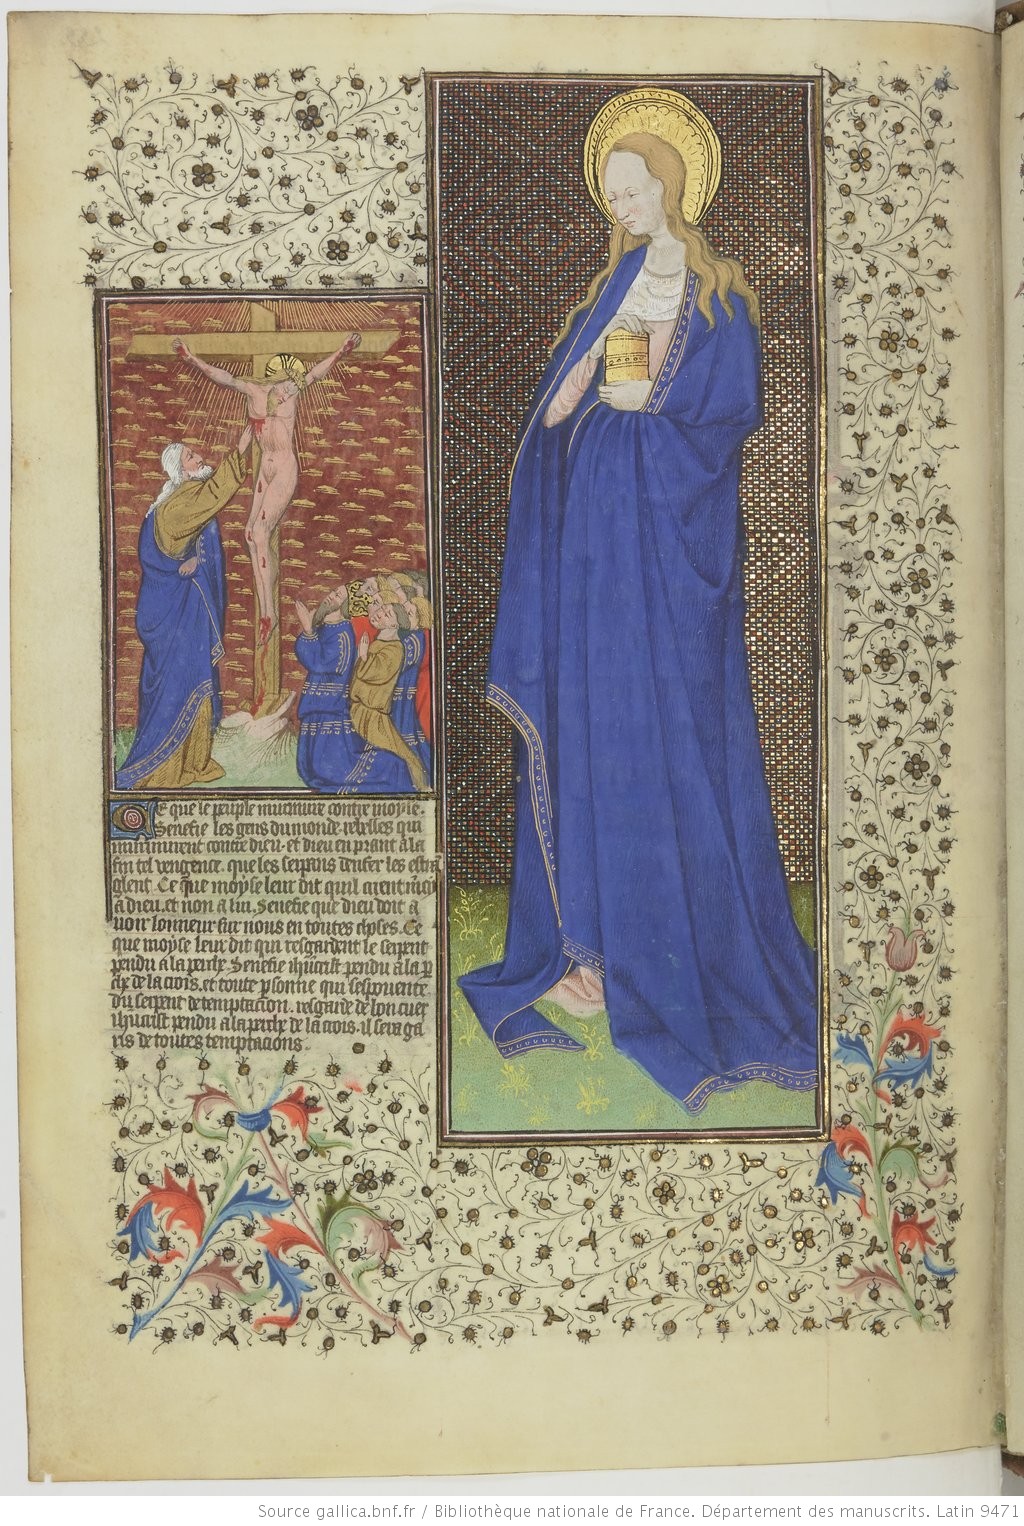 Ce que le peuple murmure contre moyse.
Senefie les gens du monde rebelles qui
murmurent contre dieu. et dieu en prant a la
fin tel vengence. que les serpans denfer les estrã
glent. Ce que moyse leur dit quil aient
a dieu. et non a lui. Senefie que dieu doit a
voir lonneur sur nous en toutes choses. Ce
que moyse leur dit qui resgardent le serpent
pendu a la perche. Senefie ihũcrist pendu a la per
che de la crois. et toute psonne qui sespouente
du serpent de temptacion. resgarde de bon cuer
ihũcrist pendu a la perche de la crois. il sera ga
ris de toutes temptacions.
Source gallica.bnf.fr / Bibliothèque nationale de France. Département des manuscrits. Latin 9471